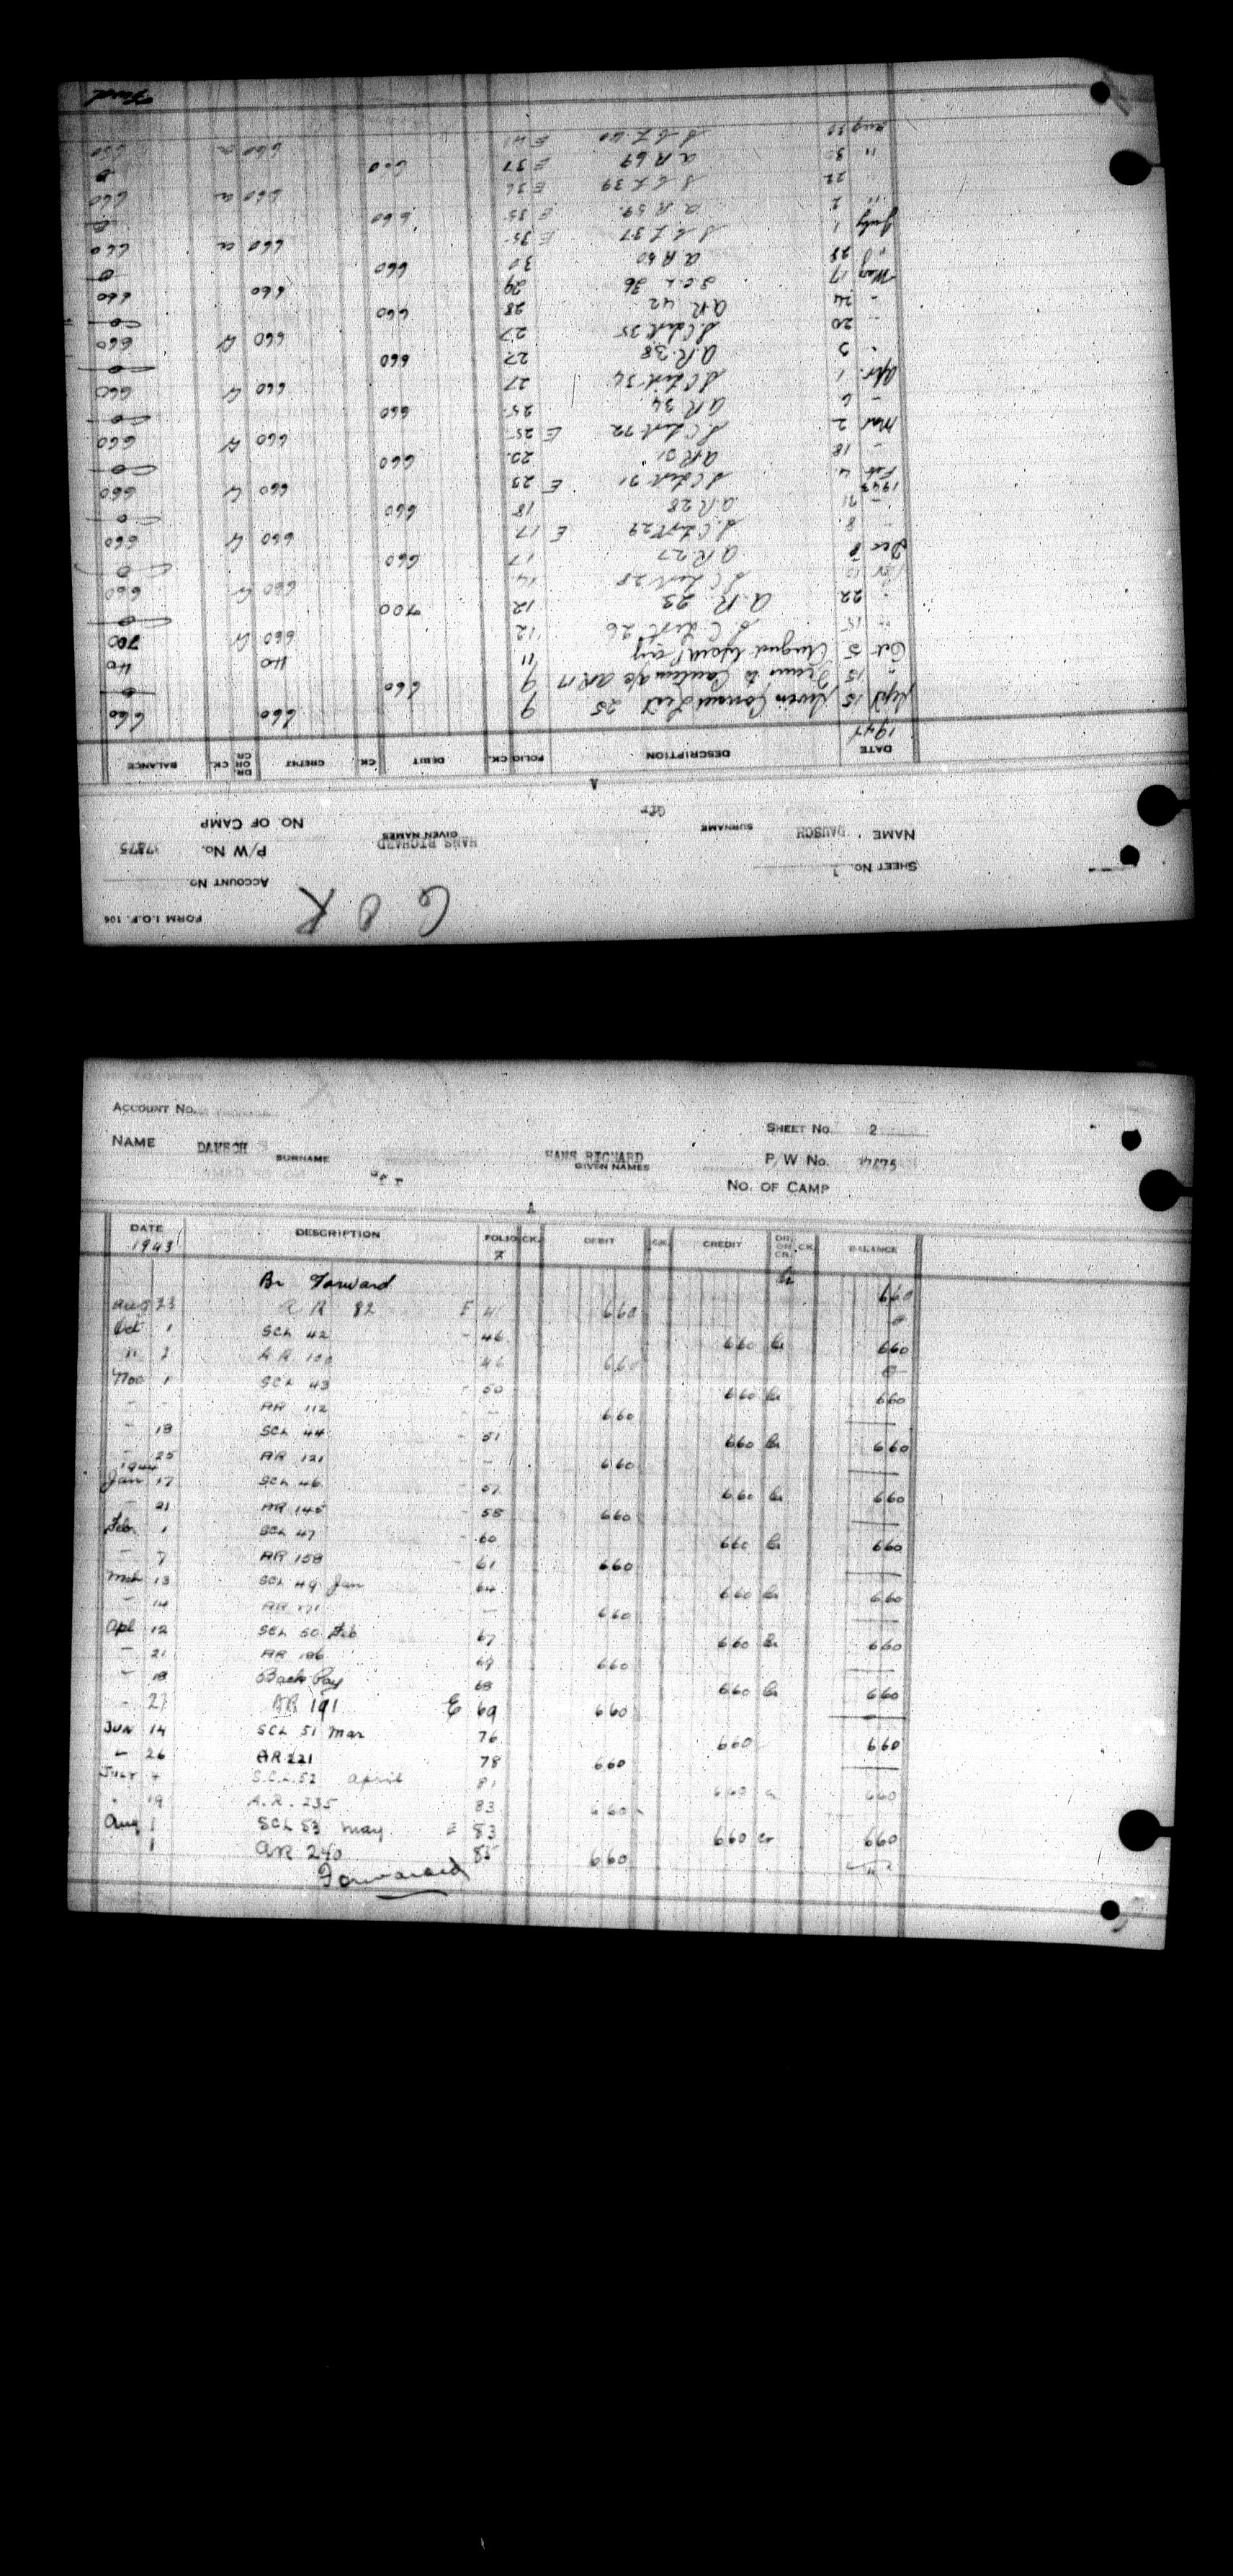 FORM I.O.F. 106
G O R
ACCOUNT No.
SHEET No.
P/W No.
NAME DAUSCH HANS RICHARD
SURNAME GIVEN NAMES
NO. OF CAMP
A
DATE DESCRIPTION FOLIO CK. DEBIT CK. CREDIT DR OR CR CK. BALANCE
Sept 15 Swiss Consul List 25 9 660 660
" 15 Trans to Canteen a/c AR 17 9 660 0
Oct 5 11 40 40
" 15 S C List 26 12 660 Cr 700
" 22 A.R. 23 12 700 0
Nov 10 S C List 28 14 660 Cr 660
Dec 8 A R 27 17 660 0
- 8 S.C List 29 E 17 660 Cr 660
A.R 28 18 660 0
1943
Feb 4 S C List 31 E 23 660 Cr 660
- 18 A.R 31 660 0
Mar 2 S C List E 25 660 Cr 660
- 6 A R 34 25 660 0
Apr. 1 S C List 34 27 660 Cr 660
A.R. 38 27 660 0
- 20 S C List 35 27 660 Cr 660
- 24 A.R. 42 28 660 0
May 17 S.C.L 36 29 660 660
" 28 A R 50 30 660 0
July 1 S C L 37 E 35 660 Cr 660
" 2 A R 59 E 35 660 0
" 22 S C L 39 E 36 660 Cr 660
" 30 A R 69 E 37 660 0
Aug S C L 40 E 41 660 Cr 660
Fwd
ACCOUNT No. SHEET No. 2
NAME DAUSCH HANS RICHARD P/W No.
SURNAME GIVEN NAMES
NO. OF CAMP
A
DATE DESCRIPTION FOLIO CK. DEBIT CK. CREDIT DR. OR CR. CK. BALANCE
1943
Br Forward Cr 660
Aug 23 A R 82 E 41 660 0
Oct 1 SCL 42 - 46 660 Cr 660
" 2 A R 100 46 660 0
Nov 1 SCL 43 - 50 660 Cr 660
- - AR 112 - - 660
- 18 SCL 44 - 51 660 Cr 660
- 25 AR 121 - 660
1944
Jan 17 SCL 46 - 57 660 Cr 660
- 21 AR 145 - 58 660
Feb 1 SCL 47 - 60 660 Cr 660
- 7 AR 158 - 61 660
Mch 13 SCL 49 Jan 64 660 Cr 660
- 14 AR 171 - 660
Apl 12 SCL 50 Feb 67 660 Cr 660
- 21 AR 186 69 660
- 18 Back Pay 68 660 Cr 660
- 27 AR 191 E 69 660
JUN 14 SCL 51 Mar 76 660 660
- 26 AR 221 78 660
JULY 4 S.C.L. 52 April 81 660 Cr 660
" 19 A.R. 235 83 660
Aug 1 SCL 53 May E 83 660 Cr 660
1 AR 240 85 660
Forwarded